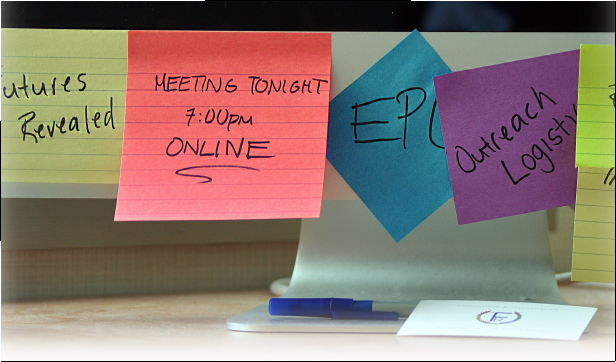 utures
Revealed
MEETING TONIGHT
7:00pm
ONLINE
EPC
Outreach
Logisti